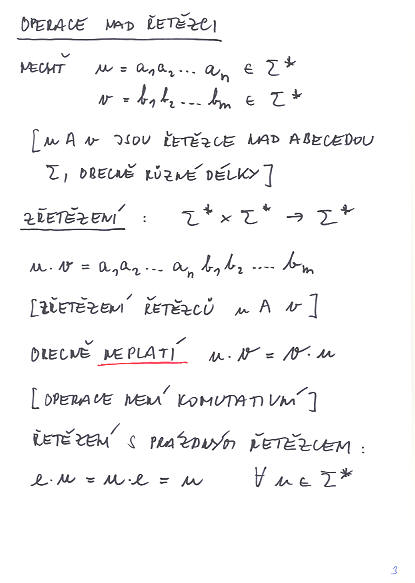 OPERACE NAD ŘETĚZCI
NECHŤ u = a₁a₂... aₙ ∈ Σ*
v = b₁b₂... bₘ ∈ Σ*
[u A v JSOU ŘETĚZCE NAD ABECEDOU
Σ, OBECNĚ RŮZNÉ DÉLKY]
ZŘETĚZENÍ : Σ* × Σ* → Σ*
u·v = a₁a₂... aₙ b₁b₂.... bₘ
[ZŘETĚZENÍ ŘETĚZCŮ u A v]
OBECNĚ NEPLATÍ u·v = v·u
[OPERACE NENÍ KOMUTATIVNÍ]
ŘETĚZENÍ S PRÁZDNÝM ŘETĚZCEM :
e·u = u·e = u ∀ u ∈ Σ*
3